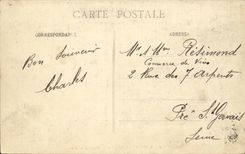 CARTE POSTALE
CORRESPONDANCE
Bon Souvenir
Charles
Mr & Mme Résimond
Commerce de Vins
2 Rue des 7 Arpents
Pré St Gervais
Seine